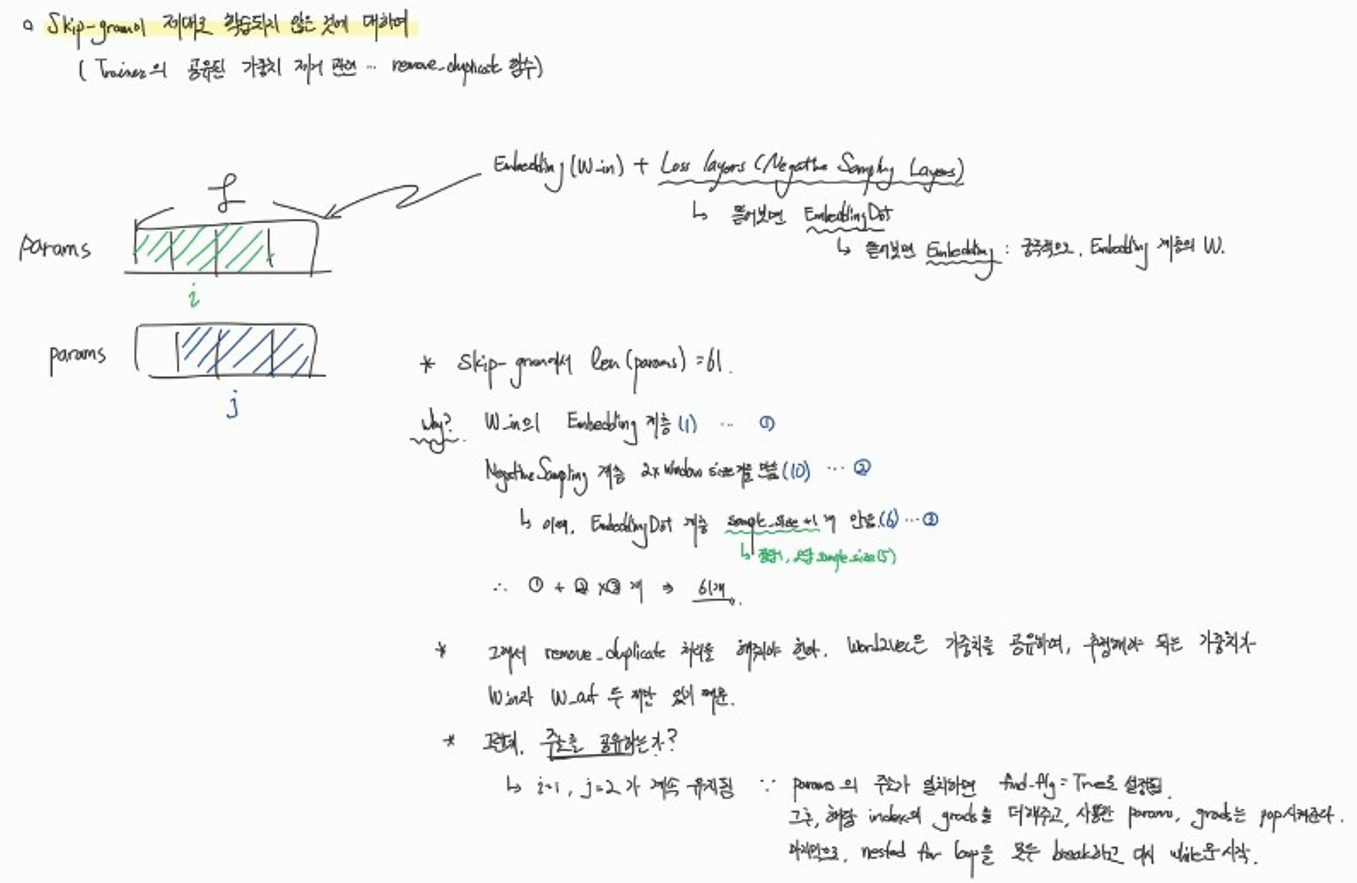 Skip-gram이 제대로 학습되지 않은 것에 대하여
( Trainer의 공유된 가중치 제거 관련 … remove_duplicate 함수)
Embedding (W_in) + Loss layers (Negative Sampling Layers)
L
↳ 뜯어보면 EmbeddingDot
params
↳ 뜯어보면 Embedding : 궁극적으로, Embedding 계층의 W.
i
params
j
* Skip-gram에서 len(params) = 61.
Why? W_in의 Embedding 계층 (1) … ①
NegativeSampling 계층 2x window size 개를 만듦 (10) … ②
↳ 이때, EmbeddingDot 계층 sample_size +1 개 만듦. (6) … ③
↳ 정답1, 오답 sample size(5)
∴ ① + ② x ③ 개 ⇒ 61개.
* 그래서 remove_duplicate 처리를 해줘야 한다. Word2Vec은 가중치를 공유하며, 추정해야 되는 가중치가
W_in과 W_out 두 개만 있기 때문.
* 그런데, 주소를 공유하는가?
↳ i=1, j=2 가 계속 유지됨 ∵ params의 주소가 일치하면 find_flg = True로 설정됨.
그후, 해당 index의 grads를 더해주고, 사용한 params, grads는 pop시켜준다.
마지막으로, nested for loop을 모두 break하고 다시 while문 시작.